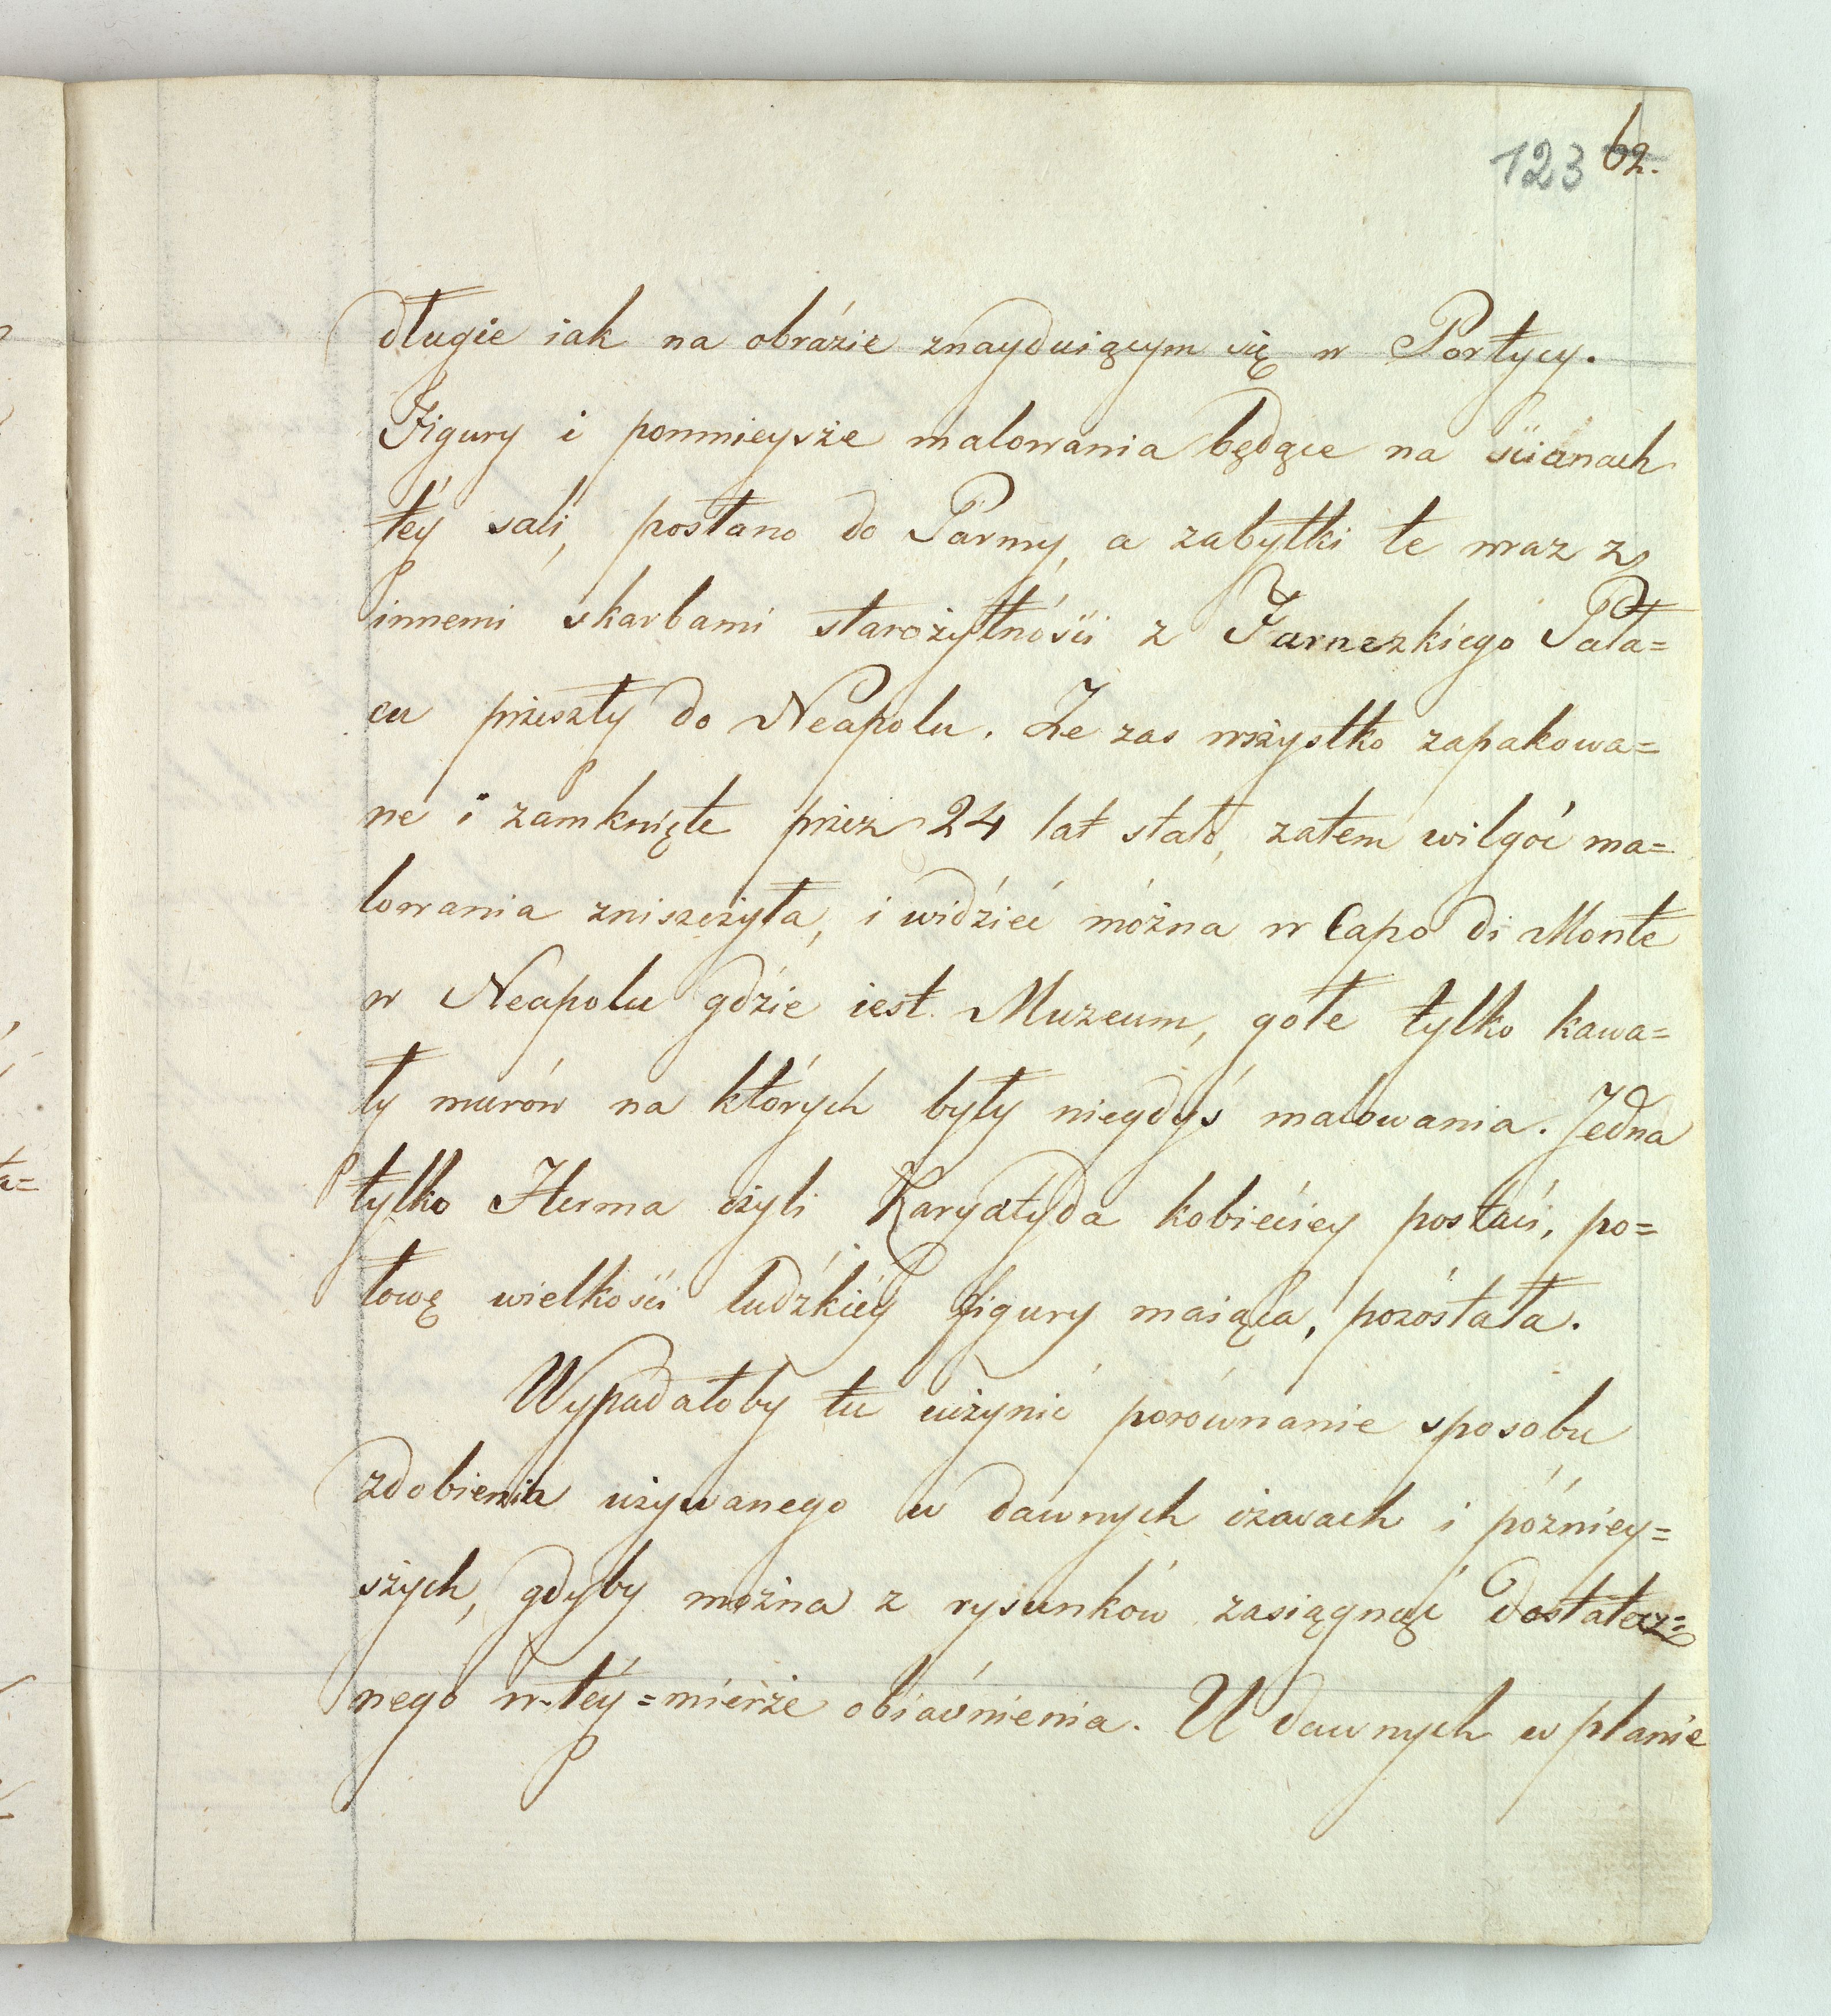 123 62.
długie iak na obrázie znayduiącym się w Portycy.
Figury i pomnieysże malowania będące na ścianach
téy sali, posłano do Parmy, a zabytki te wraz z
innemi skarbami starożytności z Farnezkiego Pała=
cu przeszły do Neapolu. Że zas wszystko zapakowa=
ne i zamknięte przez 24 lat stało, zatem wilgóć ma=
lowania zniszczyła, i widzieć można w Capo di Monte
w Neapolu gdzie iest Muzeum, gołe tylko kawa=
ły murów na których były niegdyś malowania. Jedna
tylko Herma czyli Karyatyda kobieciey postaci, po=
łowę wielkości ludzkiéy figury maiąca, pozostała.
Wypadałoby tu uczynić porównanie sposobu
zdobienia używanego w dawnych czasach i późniey=
szych, gdyby można z rysunków zasiągnąć dostatecz=
nego w téy=mierze obiaśnienia. U dawnych w planie
ła=